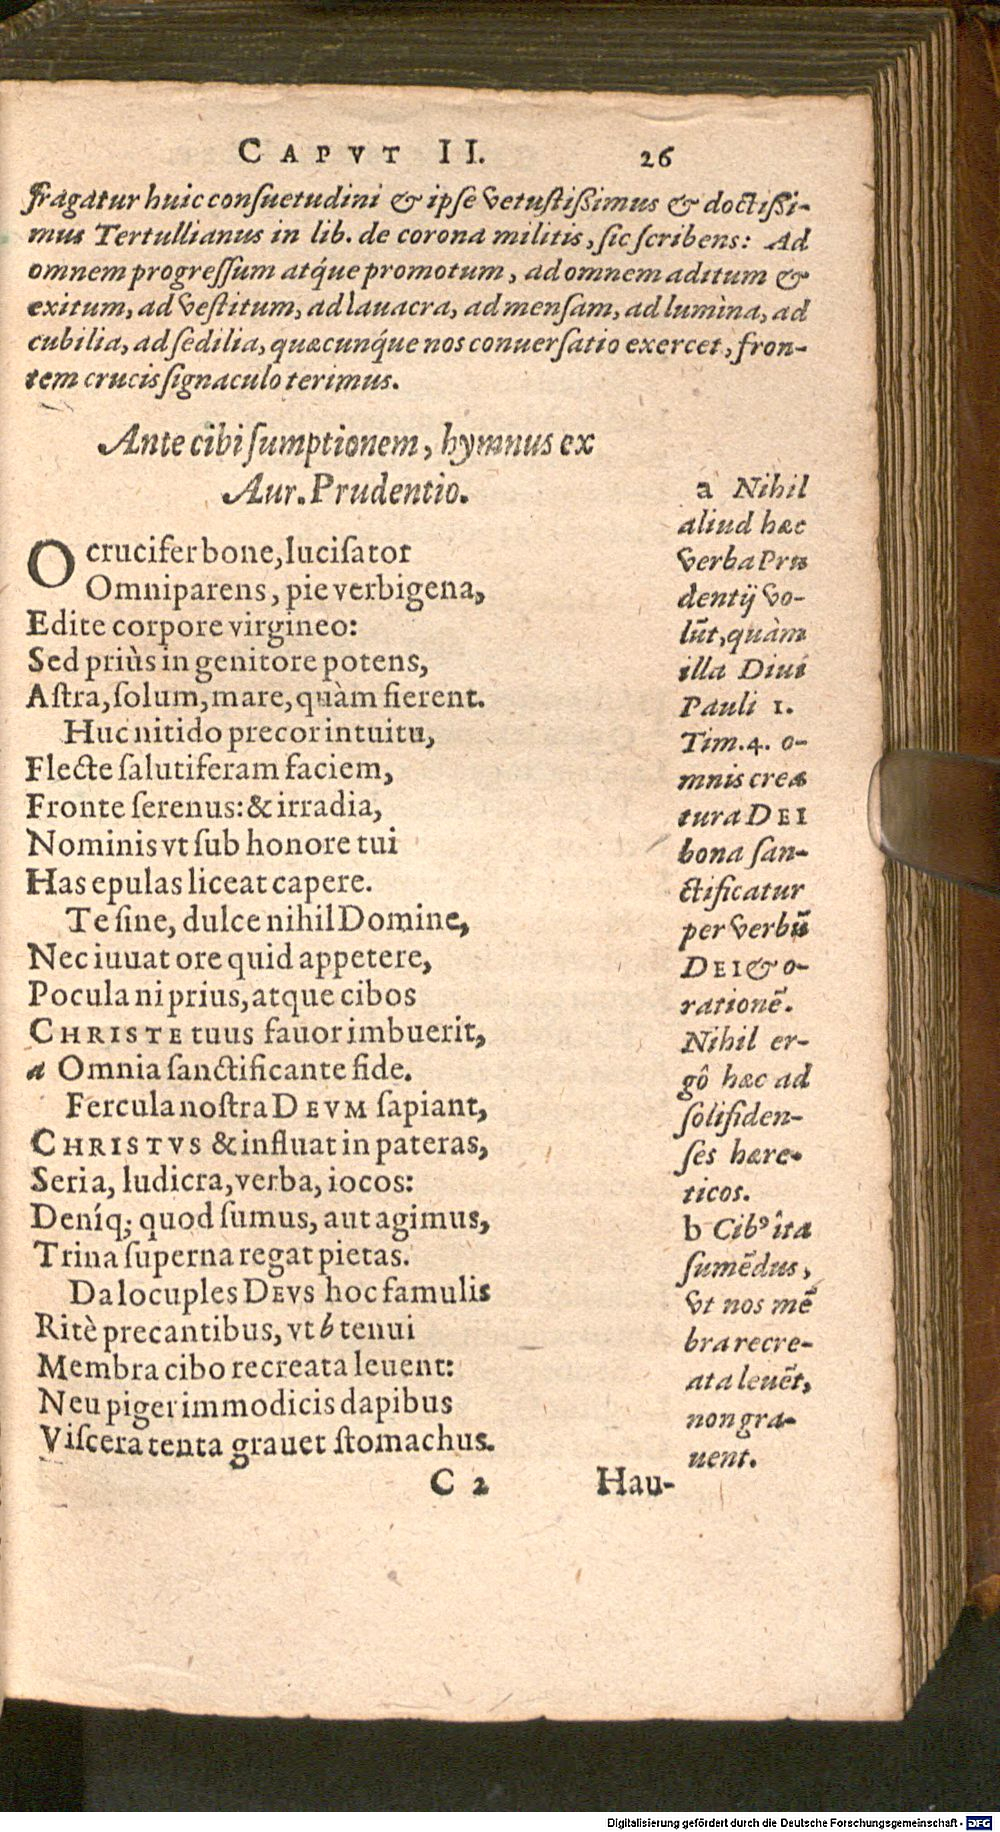 CAPVT II. 26
fragatur huic conſuetudini & ipſe vetuſtiſsimus & doctiſsi-
mus Tertullianus in lib. de corona militis, ſic ſcribens: Ad
omnem progreſſum atq́ue promotum, ad omnem aditum &
exitum, ad veſtitum, ad lauacra, ad menſam, ad lumina, ad
cubilia, ad ſedilia, quæcunq́ue nos conuerſatio exercet, fron-
tem crucis ſignaculo terimus.
Ante cibi ſumptionem, hymnus ex
Aur. Prudentio.
O crucifer bone, luciſator
Omniparens, pie verbigena,
Edite corpore virgineo:
Sed priùs in genitore potens,
Aſtra, ſolum, mare, quàm fierent.
Huc nitido precor intuitu,
Flecte ſalutiferam faciem,
Fronte ſerenus: & irradia,
Nominis vt ſub honore tui
Has epulas liceat capere.
Te ſine, dulce nihil Domine,
Nec iuuat ore quid appetere,
Pocula ni prius, atque cibos
CHRISTE tuus fauor imbuerit,
a Omnia ſanctificante fide.
Fercula noſtra DEVM ſapiant,
CHRISTVS & influat in pateras,
Seria, ludicra, verba, iocos:
Deníq; quod ſumus, aut agimus,
Trina ſuperna regat pietas.
Da locuples DEVS hoc famulis
Ritè precantibus, vt b tenui
Membra cibo recreata leuent:
Neu piger immodicis dapibus
Viſcera tenta grauet ſtomachus.
a Nihil
aliud hæc
verba Pru
dentij vo-
lũt, quàm
illa Diui
Pauli 1.
Tim. 4. o-
mnis crea
tura DEI
bona ſan-
ctificatur
per verbũ
DEI & o-
rationẽ.
Nihil er-
gô hæc ad
ſolifiden-
ſes hære-
ticos.
b Cibꝰ îta
ſumẽdus,
vt nos mẽ
bra recre-
ata leuẽt,
non gra-
uent.
C 2 Hau-
Digitalisierung gefördert durch die Deutsche Forschungsgemeinschaft - DFG